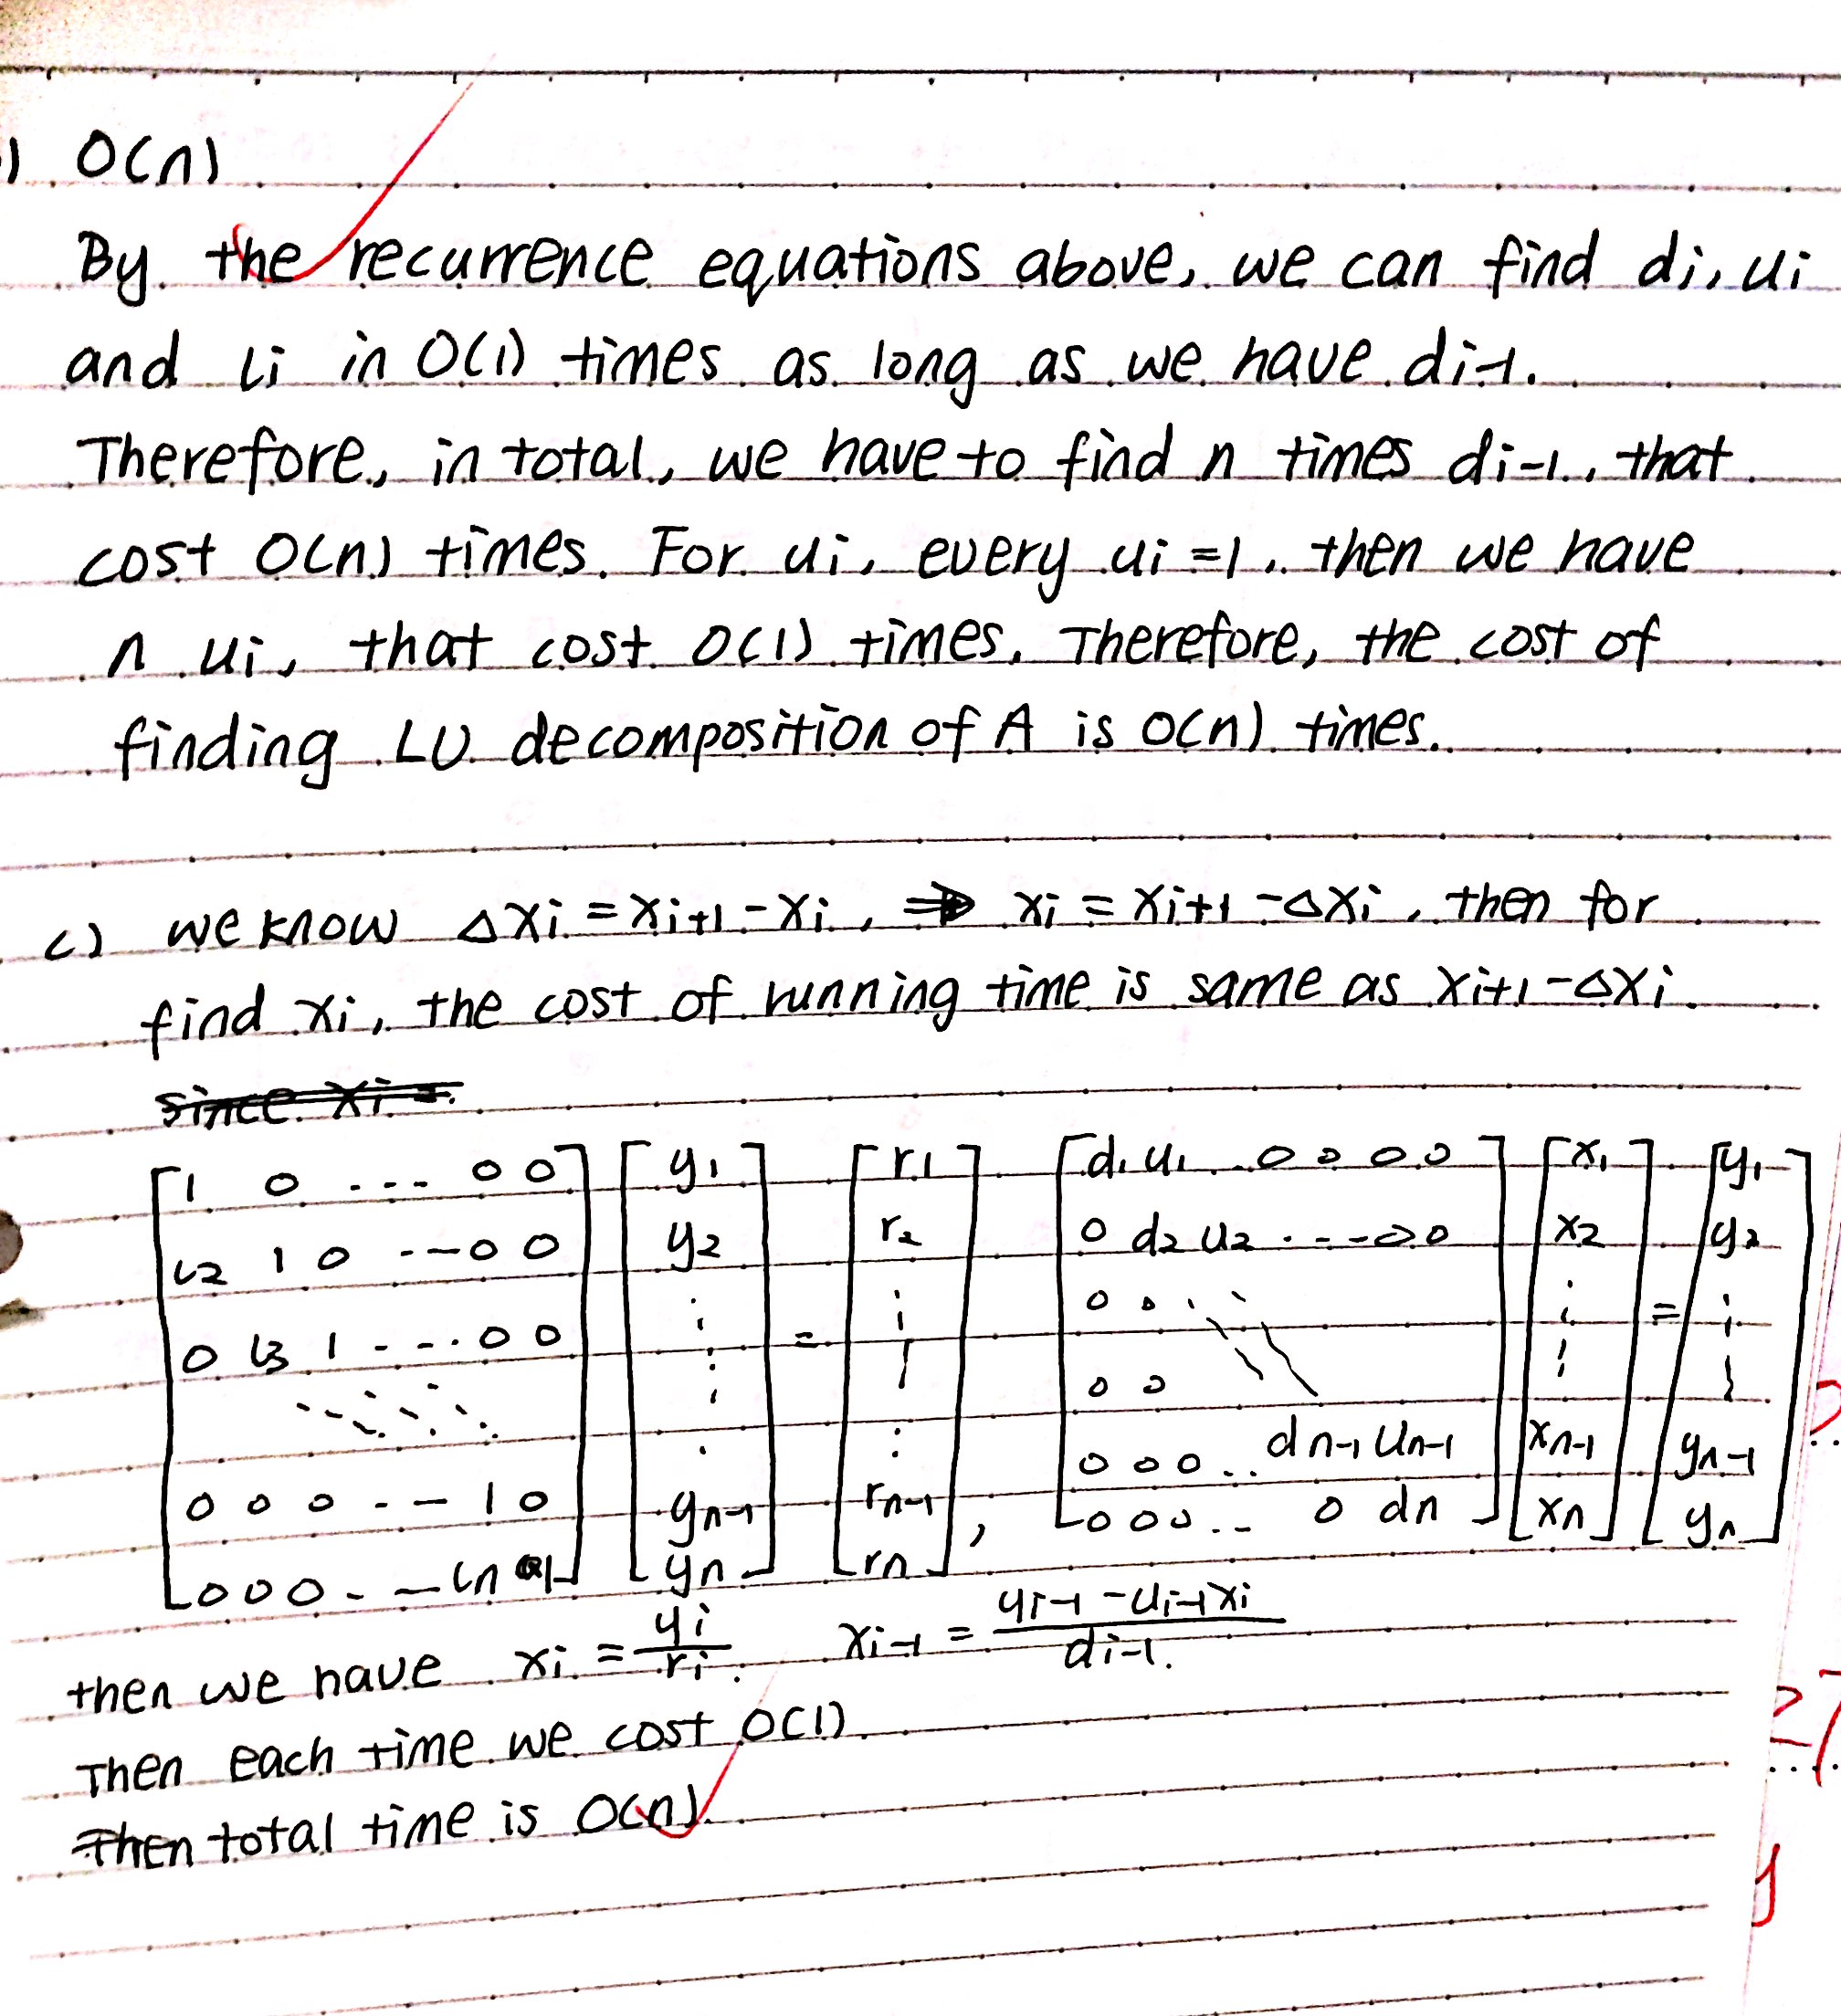 ) O(n)
By the recurrence equations above, we can find di, ui
and li in O(1) times as long as we have di-1.
Therefore, in total, we have to find n times di-1, that
cost O(n) times. For ui, every ui =1, then we have
n ui, that cost O(1) times. Therefore, the cost of
finding LU decomposition of A is O(n) times.
c) we know △xi = xi+1 - xi, ⇒ xi = xi+1 - △xi, then for
find xi, the cost of running time is same as xi+1 - △xi.
since xi =
[1 0 ... 0 0] [y1] [r1] [d1 u1 ... 0 0 0 0] [x1] [y1]
[l2 1 0 ... 0 0] [y2] [r2] [0 d2 u2 ... 0 0] [x2] [y2]
[0 l3 1 ... 0 0] = 0 0 =
0 0
[0 0 0 ... 1 0] [yn-1] [rn-1] [0 0 0 .. dn-1 un-1] [xn-1] [yn-1]
[0 0 0 ... ln 1] [yn] [rn] , [0 0 0 .. 0 dn] [xn] [yn]
then we have xi = yi/ri. xi-1 = (yi-1 - ui-1xi)/di-1.
Then each time we cost O(1)
Then total time is O(n).